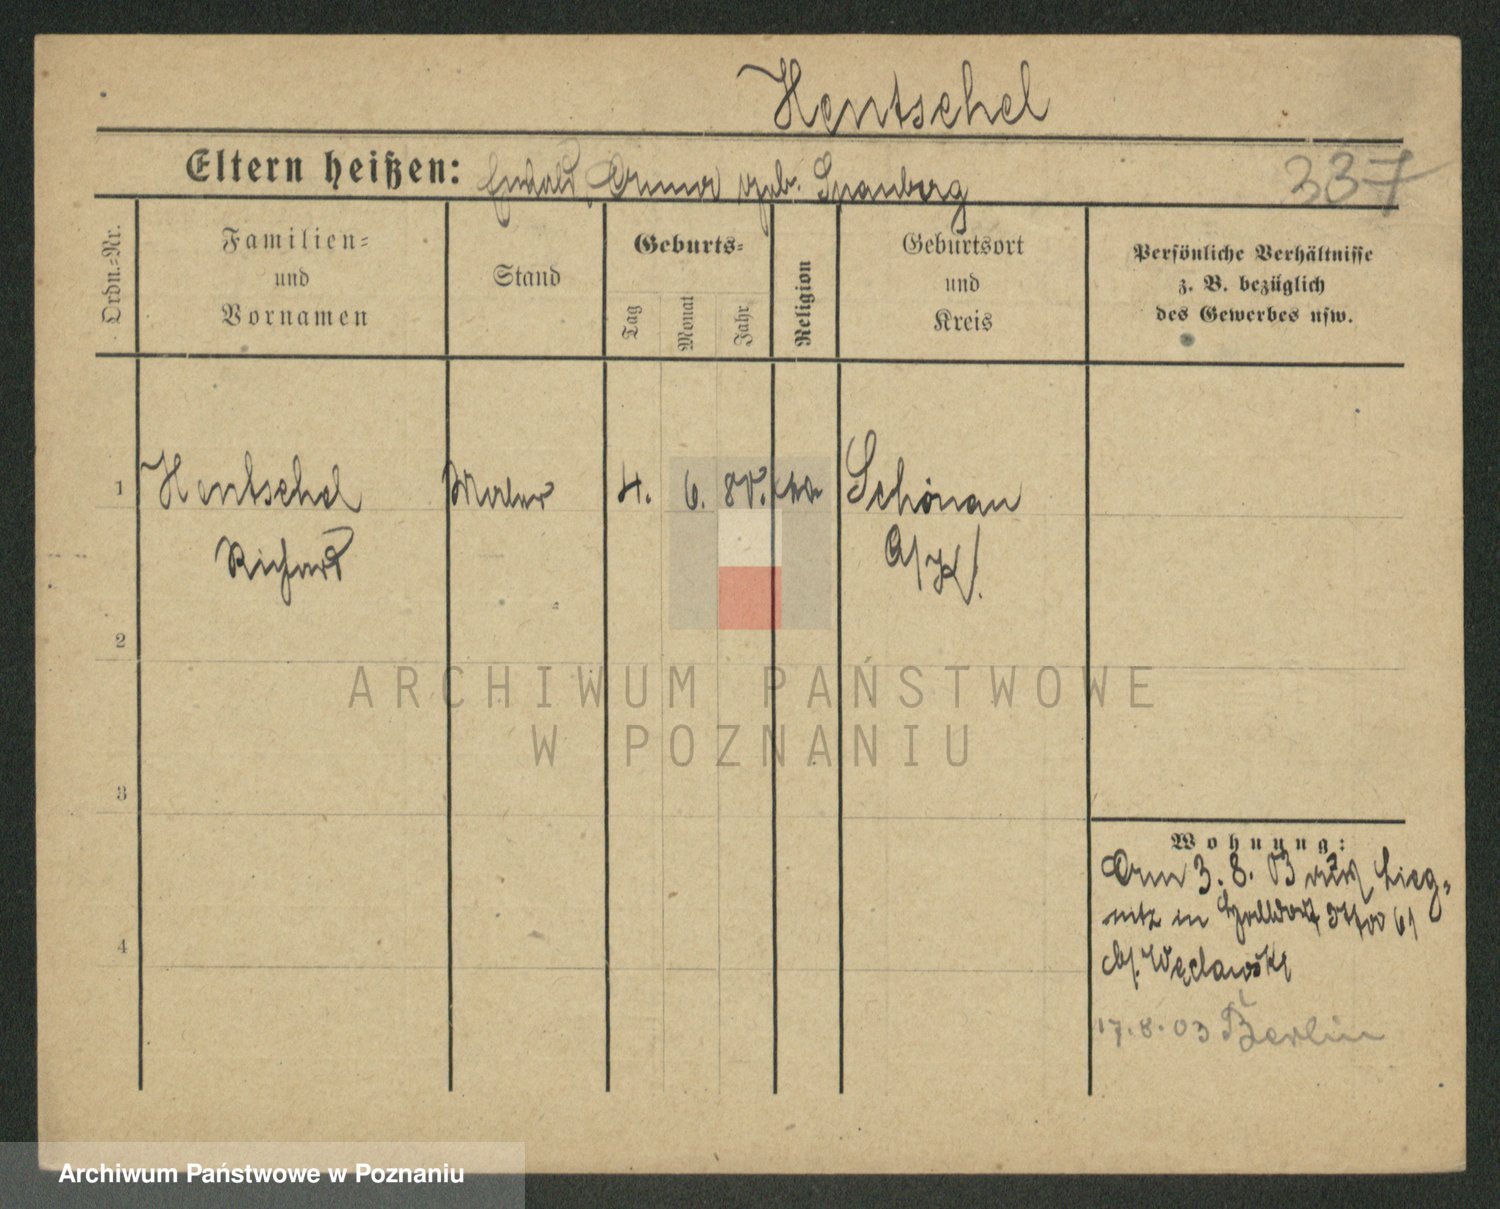 Hentschel
Eltern heißen: Ewald, Anna geb. Spanberg
337
Ordn.-Nr.
Familien-
und
Vornamen
Stand
Geburts-
Tag
Monat
Jahr
Religion
Geburtsort
und
Kreis
Persönliche Verhältnisse
z. B. bezüglich
des Gewerbes usw.
1
Hentschel
Maler
4.
6.
80.
Schönau
Richard
a/K.
2
ARCHIWUM PAŃSTWOWE
W POZNANIU
3
Wohnung:
Am 3. 8. 03 aus Lieg-
nitz in
61
b/.
4
17.8.03 Berlin
Archiwum Państwowe w Poznaniu